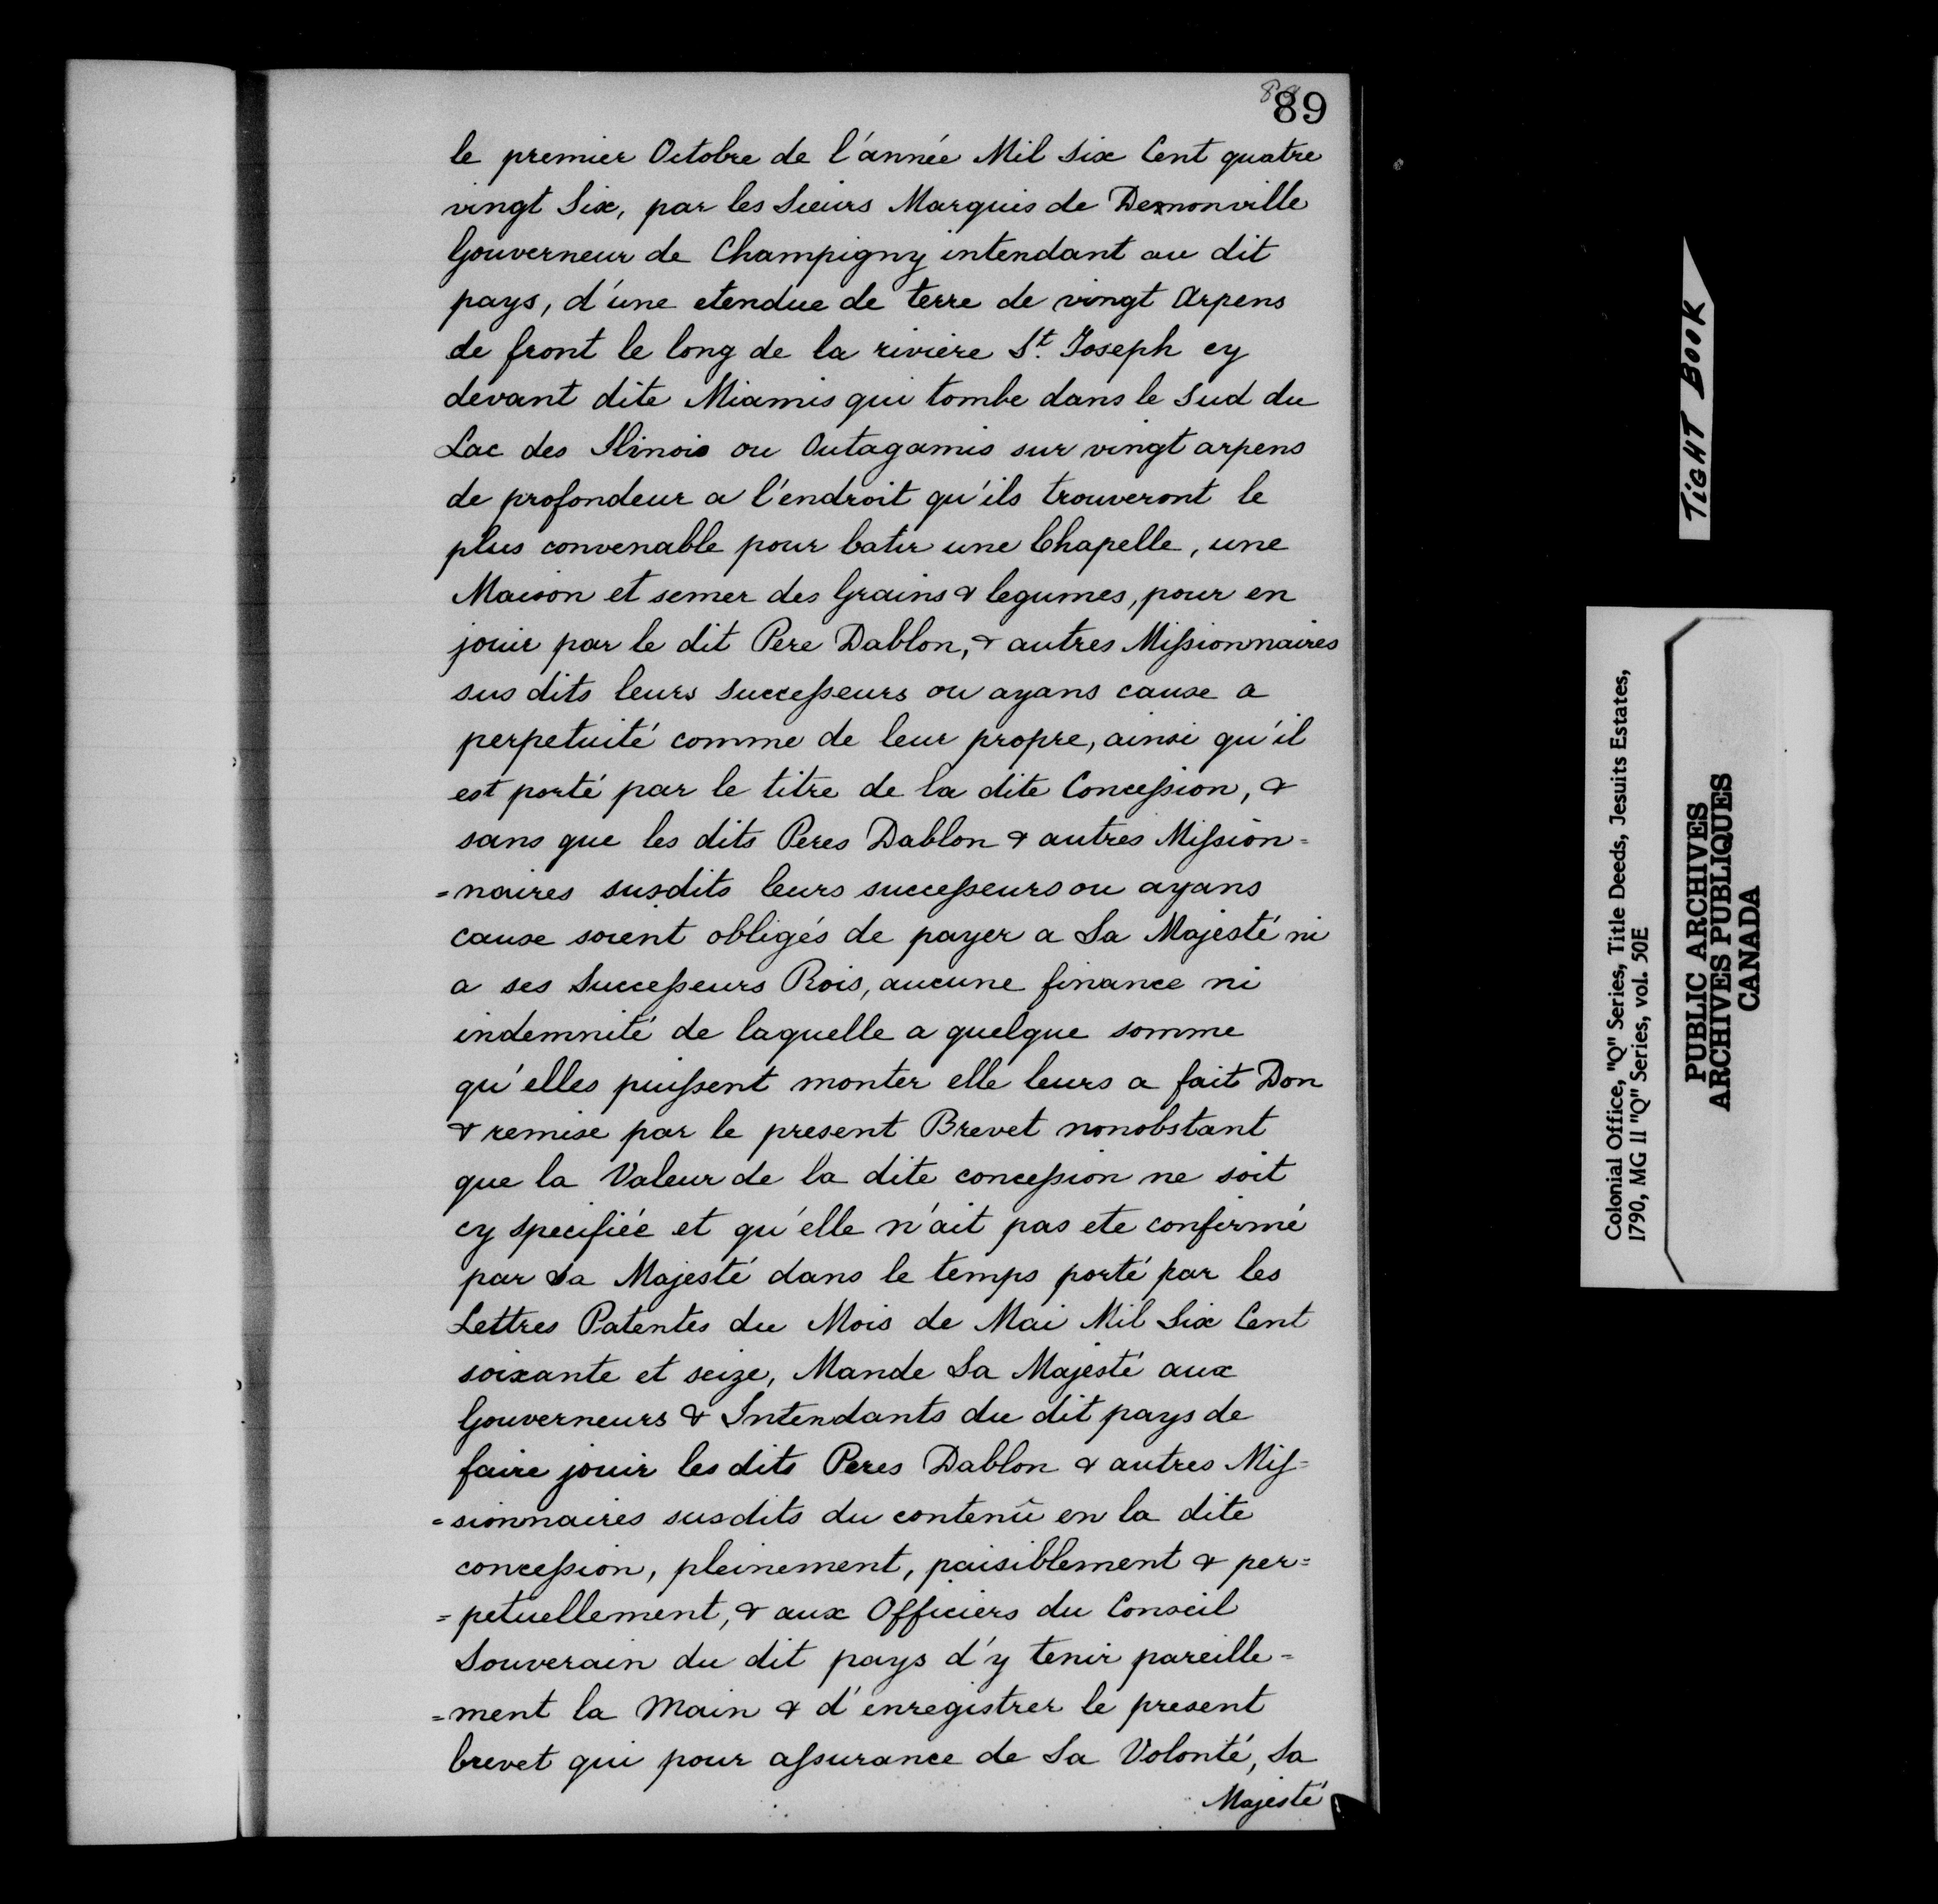 89
le premier Octobre de l'année Mil Six Cent quatre
vingt Six, par les Sieurs Marquis de Denonville
Gouverneur de Champigny intendant au dit
pays, d'une etendue de terre de vingt Arpens
de front le long de la riviere St. Joseph cy
devant dite Miamis qui tombe dans le Sud du
Lac des Ilinois ou Outagamis sur vingt arpens
de profondeur a l'endroit qu'ils trouveront le
plus convenable pour batir une Chapelle, une
Maison et semer des Grains & legumes, pour en
jouir par le dit Pere Dablon, & autres Missionnaires
sus dits leurs Successeurs ou ayans cause a
perpetuité comme de leur propre, ainsi qu'il
est porté par le titre de la dite Concession, &
sans que les dits Peres Dablon & autres Mission=
=naires susdits leurs successeurs ou ayans
cause soient obligés de payer a Sa Majesté ni
a ses Successeurs Rois, aucune finance ni
indemnité de laquelle a quelque somme
qu'elles puissent monter elle leurs a fait Don
& remise par le present Brevet nonobstant
que la Valeur de la dite concession ne soit
cy specifiée et qu'elle n'ait pas ete confirmé
par Sa Majesté dans le temps porté par les
Lettres Patentes du Mois de Mai Mil Six Cent
soixante et seize, Mande Sa Majesté aux
Gouverneurs & Intendants du dit pays de
faire jouir les dits Peres Dablon & autres Mis=
=sionnaires susdits du contenû en la dite
concession, pleinement, paisiblement & per=
=petuellement, & aux Officiers du Conseil
Souverain du dit pays d'y tenir pareille=
=ment la Main & d'enregistrer le present
brevet qui pour assurance de Sa Volonté, Sa
Majesté
TIGHT BOOK
Colonial Office, "Q" Series, Title Deeds, Jesuits Estates,
1790, MG 11 "Q" Series, vol. 50E
PUBLIC ARCHIVES
ARCHIVES PUBLIQUES
CANADA